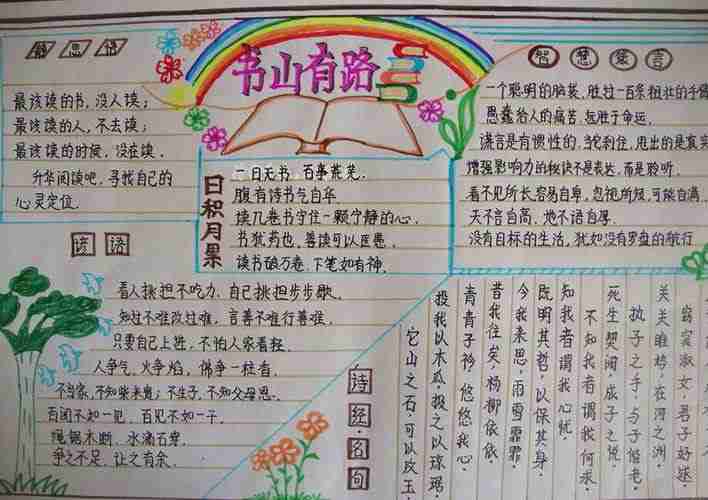 思语
最该读的书，没人读；
最该读的人，不去读；
最该读的时候，没在读.
升华阅读吧，寻找自己的
心灵定位.
书山有路
日积月累
一日无书，百事荒芜.
腹有诗书气自华.
读几卷书守住一颗宁静的心.
书犹药也，善读可以医愚.
读书破万卷，下笔如有神.
智慧箴言
一个聪明的脑袋，胜过一百条粗壮的手
愚蠢给人的痛苦，远胜于命运.
谎言是有惯性的，刹住，甩出的是真实
增强影响力的秘诀不是表达，而是聆听.
看不见所长，容易自卑，忽视所短，可能自满.
天不言自高，地不语自厚.
没有目标的生活，犹如没有罗盘的航行
谚语
看人挑担不吃力，自己挑担步步歇.
知过不难改过难，言善不难行善难.
只要自己上进，不怕人家看轻.
人争气，火争焰，佛争一柱香.
不当家，不知柴米贵；不生子，不知父母恩.
百闻不如一见，百见不如一干.
绳锯木断，水滴石穿.
争之不足，让之有余.
诗经·名句
窈窕淑女，君子好逑
关关雎鸠，在河之洲.
执子之手，与子偕老.
死生契阔，与子成说.
不知我者，谓我何求.
知我者，谓我心忧.
既明其哲，以保其身.
今我来思，雨雪霏霏
昔我往矣，杨柳依依.
青青子衿，悠悠我心.
投我以木瓜，报之以琼琚.
它山之石，可以攻玉.